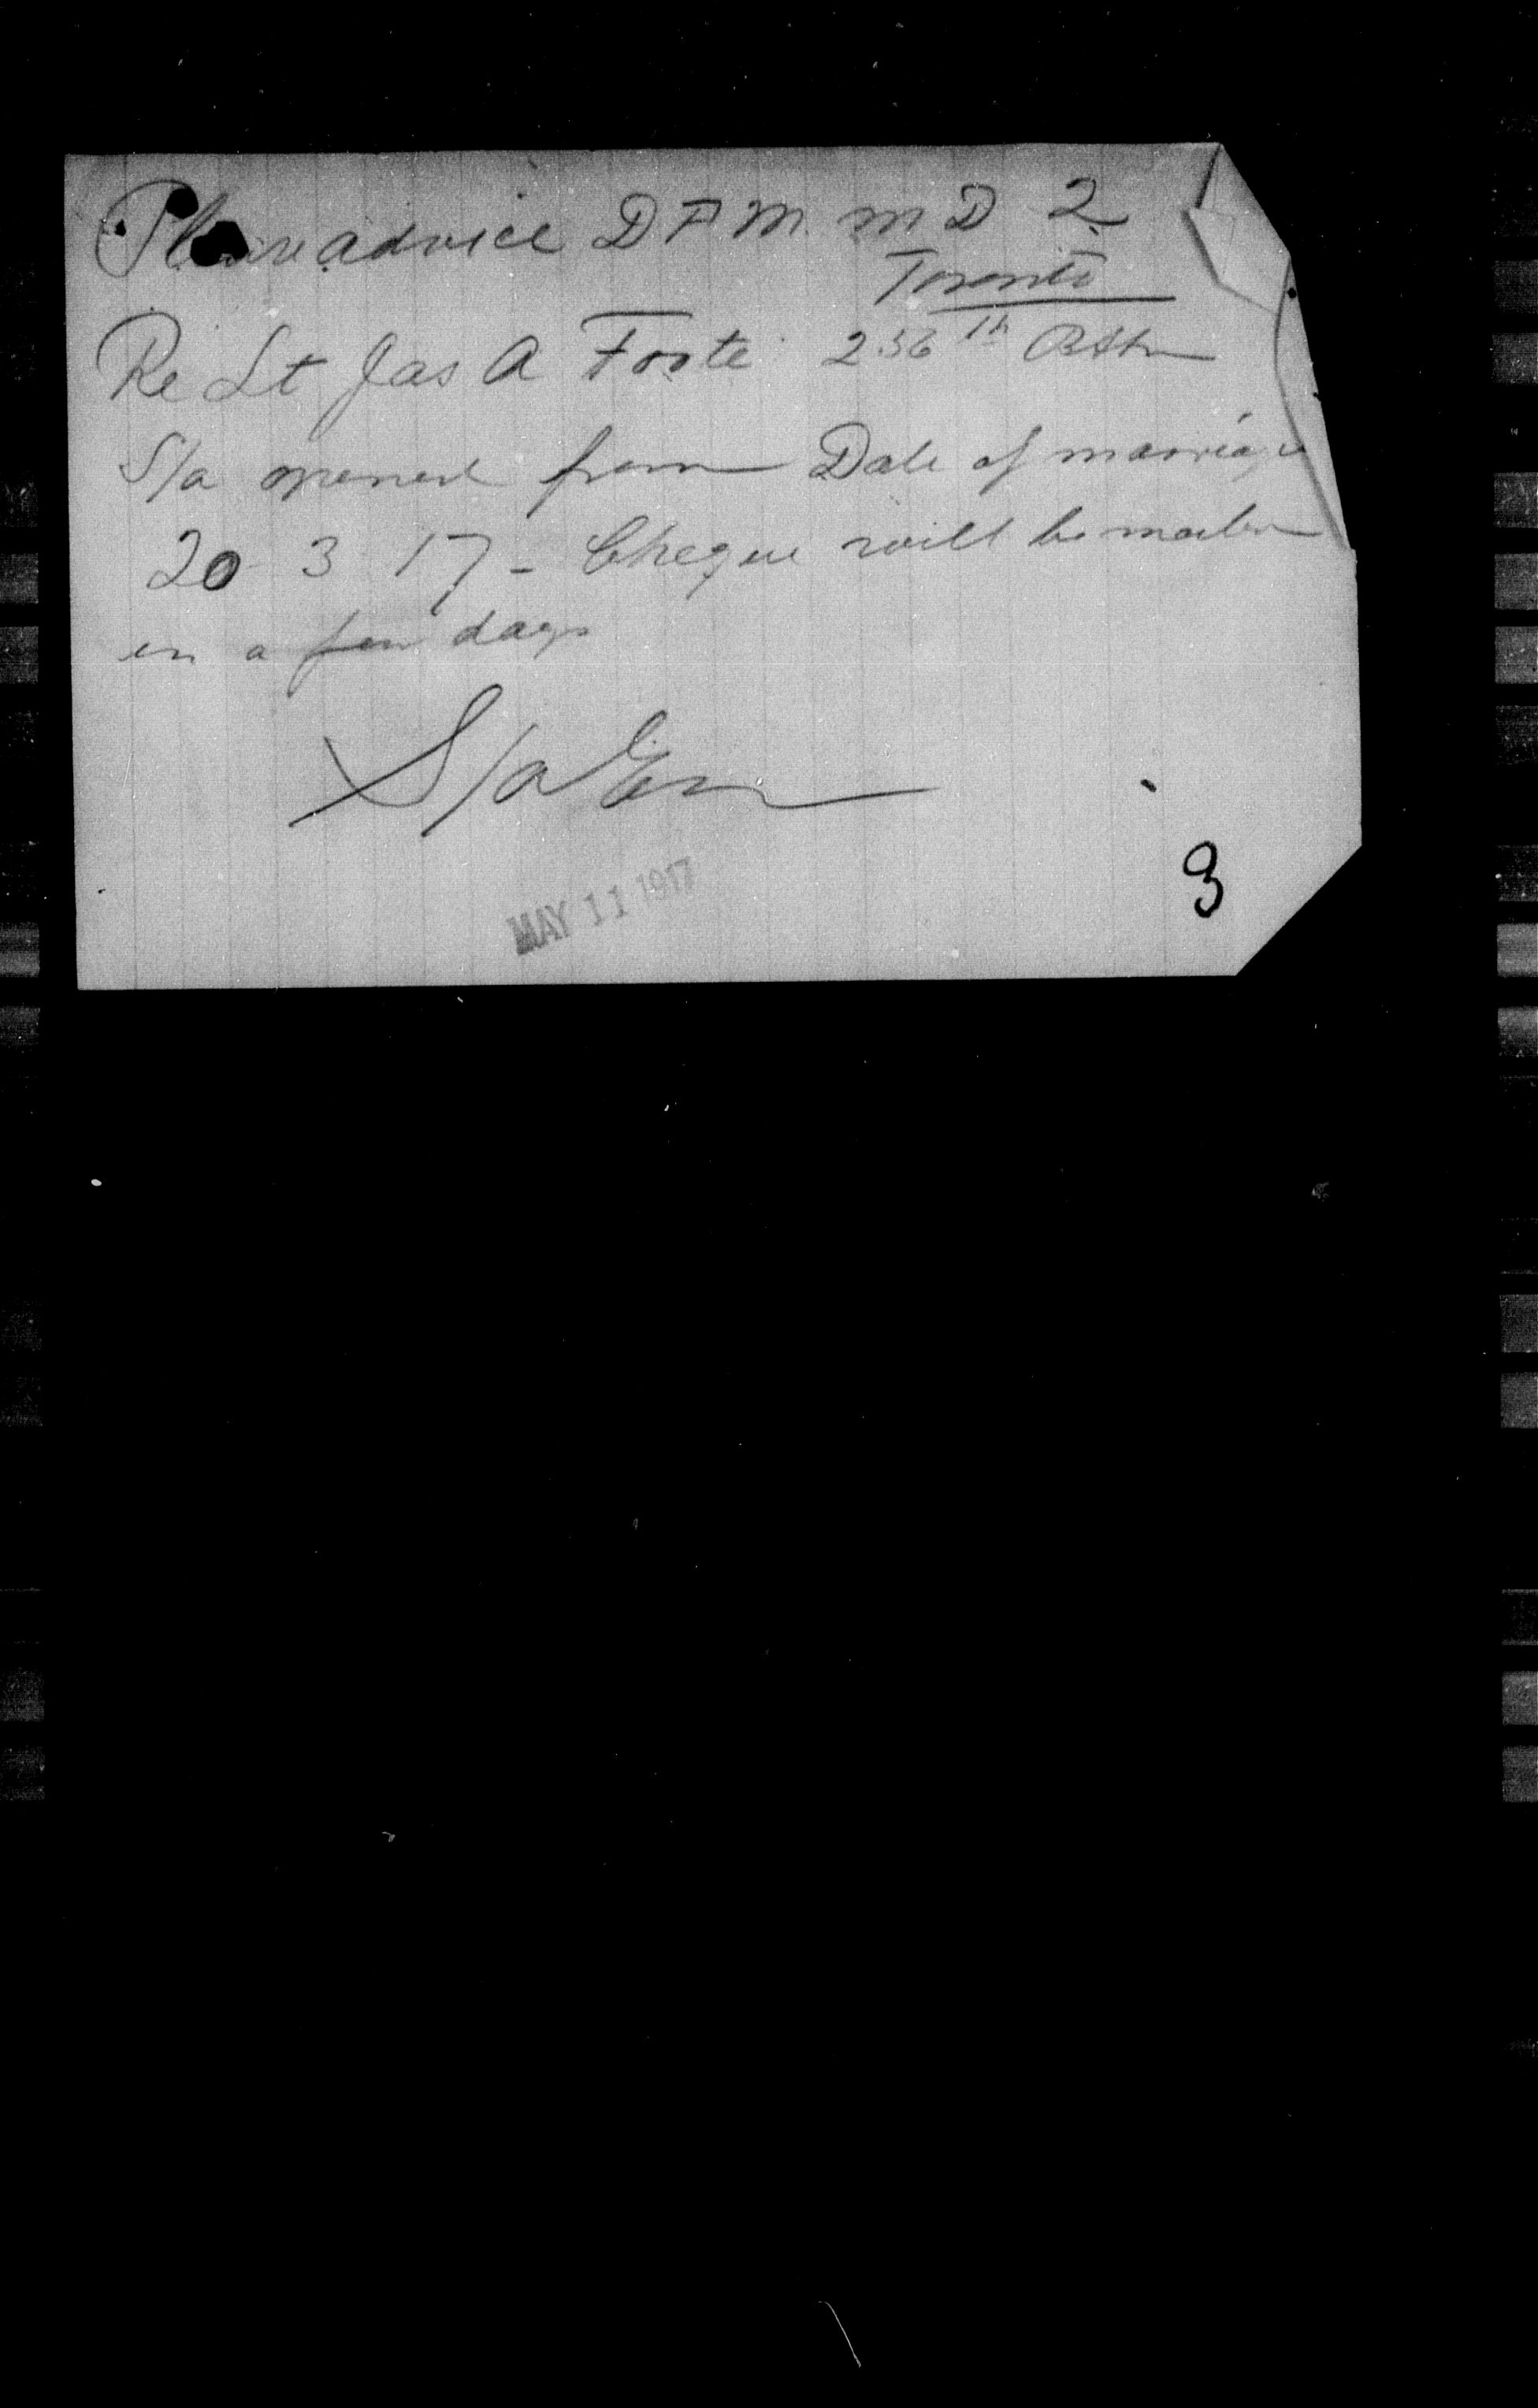 Please advice D P M. M D 2
Toronto
Re Lt Jas A Foote 256th Battn
S/a opened from Date of marriage
20 3 17 - Cheque will be mailed
in a few days
S/a
MAY 11 1917
3